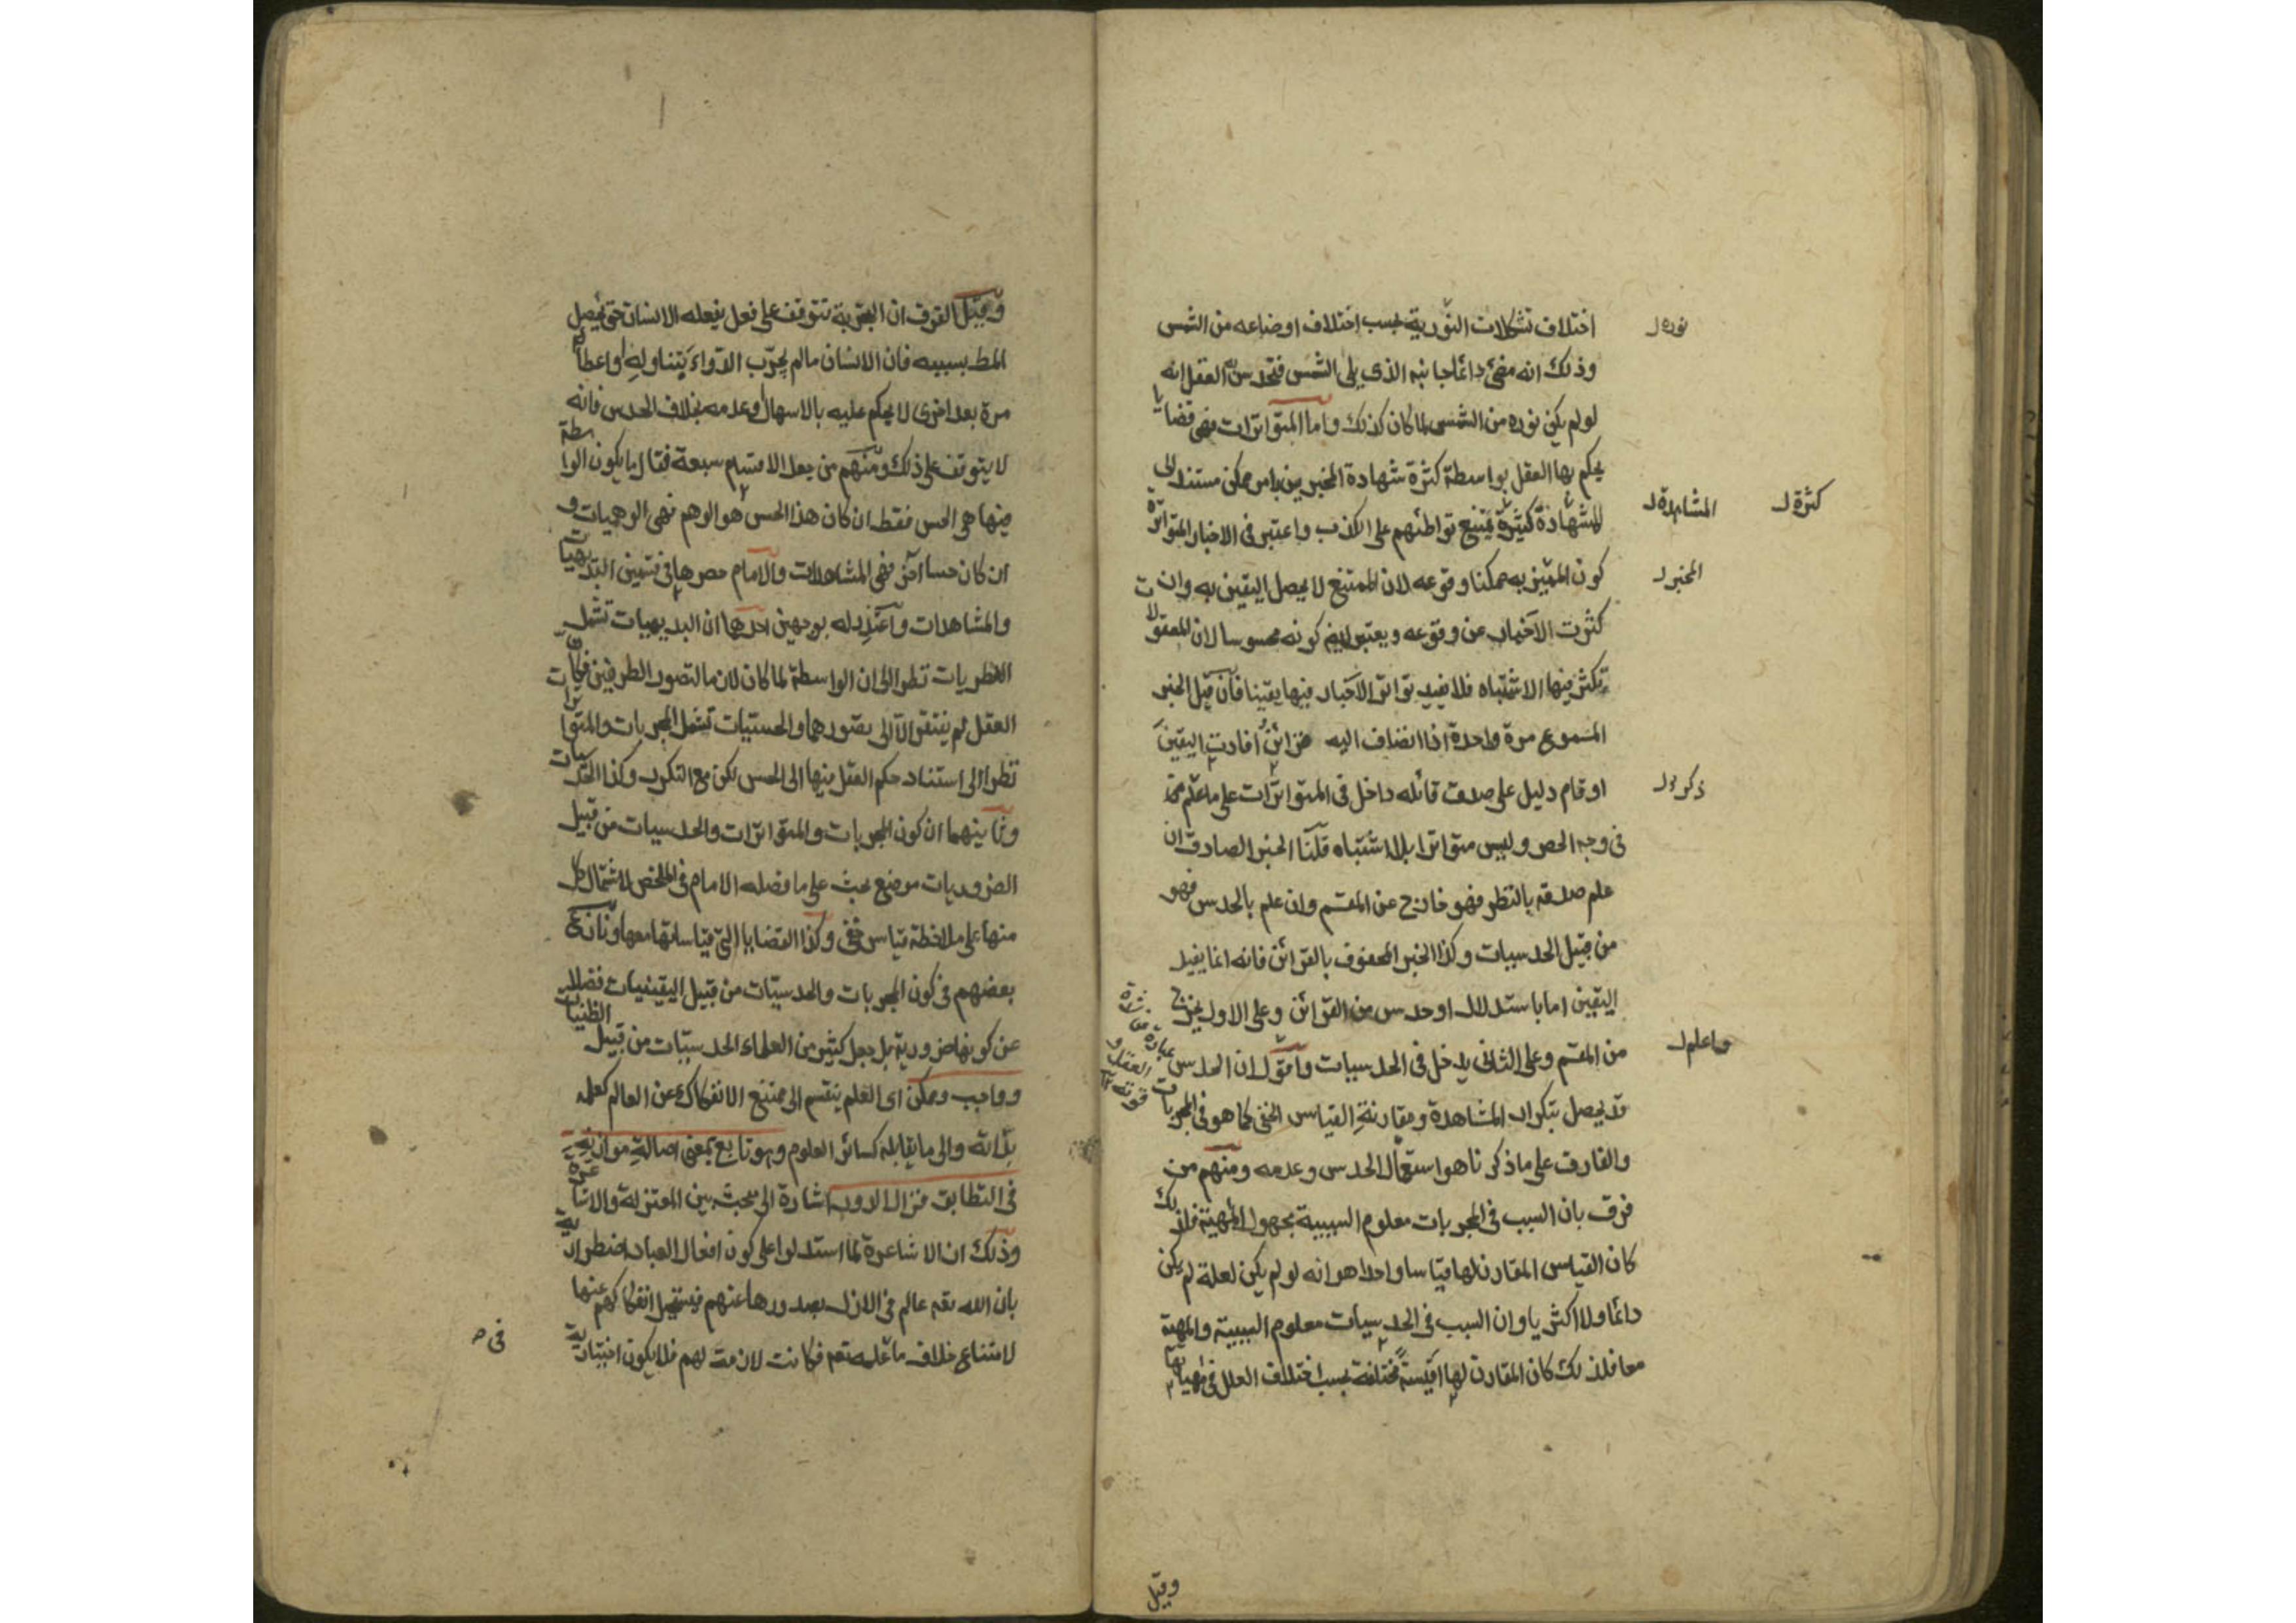 اختلاف تشكلات النورية بحسب اختلاف اوضاعه من الشمس
نوره
وذلك انه مضئ دائما جانبه الذى يلى الشمس فتحدس العقل انه
لو لم يكن نوره من الشمس لما كان كذلك واما المتواترات فهى قضايا
يحكم بها العقل بواسطة كثرة شهادة المخبرين بامر ممكن مستند الى
المشاهدة
كثرة
للشهادة كثيرة يمتنع تواطئهم على الكذب واعتبر فى الاخبار المتواترة
كون المخبر به ممكنا وقوعه لان الممتنع لا يحصل اليقين به وان
المخبر
كثرت الاخبار عن وقوعه ويعتبر فيه كونه محسوسا لان المعقولات
تكثر فيها الاشتباه فلا يفيد تواتر الاخبار فيها يقينا فان قيل الخبر
المسموع مرة واحدة اذا انضاف اليه قرائن افادت اليقين
او قام دليل على صدق قائله داخل فى المتواترات على ما علم مما
ذكر
فى وجه الحصر وليس متواترا بلا اشتباه قلنا الخبر الصادق ان
علم صدقه بالنظر فهو خارج عن المقسم وان علم بالحدس فهو
من قبيل الحدسيات وكذا الخبر المحفوف بالقرائن فانه انما يفيد
اليقين اما باستدلال او حدس من القرائن وعلى الاول يخرج
من المقسم وعلى الثانى يدخل فى الحدسيات واقول ان الحدس
واعلم
عبارة عن
العقل و
قوته
قد يحصل بتكرار المشاهدة ومقارنة القياس الخفى كما هو فى المجربات
والفارق على ما ذكرنا هو استعمال الحدس وعدمه ومنهم من
فرق بان السبب فى المجربات معلوم السببية مجهول المهية فلذلك
كان القياس المقارن لها قياسا واحدا هو انه لو لم يكن لعلة لم يكن
دائما ولا اكثريا وان السبب فى الحدسيات معلوم السببية والمهية
معا فلذلك كان المقارن لها اقيسة مختلفة بحسب اختلاف العلل فى مهياتها
وقيل
وقيل الفرق ان التجربة تتوقف على فعل يفعله الانسان حتى يحصل
المط بسببه فان الانسان ما لم يجرب الدواء بتناوله او اعطائه
مرة بعد اخرى لا يحكم عليه بالاسهال وعدمه بخلاف الحدس فانه
لا يتوقف على ذلك ومنهم من جعل الاقسام سبعة فقال ما يكون الواسطة
فيها هى الحس فقط ان كان هذا الحس هو الوهم فهى الوهميات و
ان كان حسا آخر فهى المشاهدات والامام حصرها فى قسمين البديهيات
والمشاهدات واعتذر له بوجهين احدها ان البديهيات تشمل
الفطريات نظرا الى ان الواسطة لما كان لازما لتصور الطرفين فكان
العقل لم يفتقر الا الى تصورهما والحسيات تشمل المجربات والمتواترات
نظرا الى استناد حكم العقل فيها الى الحس لكن مع التكرر وكذا الحدسيات
وثانيهما ان كون المجربات والمتواترات والحدسيات من قبيل
الضروريات موضع بحث على ما فصله الامام فى الملخص لاشتمال كل
منها على ملاحظة قياس خفى وكذا القضايا التى قياساتها معها ونازع
بعضهم فى كون المجربات والحدسيات من قبيل اليقينيات فضلا
عن كونها ضرورية بل جعل كثير من العلماء الحدسيات من قبيل الظنيات
وواجب وممكن اى العلم ينقسم الى ممتنع الانفكاك عن العالم كعلمه
بذاته والى ما يقابله كسائر العلوم وهو تابع بمعنى اصالة موازيه
فى التطابق فزال الدور اشارة الى بحث بين المعتزلة والاشاعرة
وذلك ان الاشاعرة لما استدلوا على كون افعال العباد اضطرارية
بان الله تعه عالم فى الازل بصدورها عنهم فيستحيل انفكاكهم عنها
لامتناع خلاف ما علمه تعه فكانت لازمة لهم فلا يكون اختيارية
فى